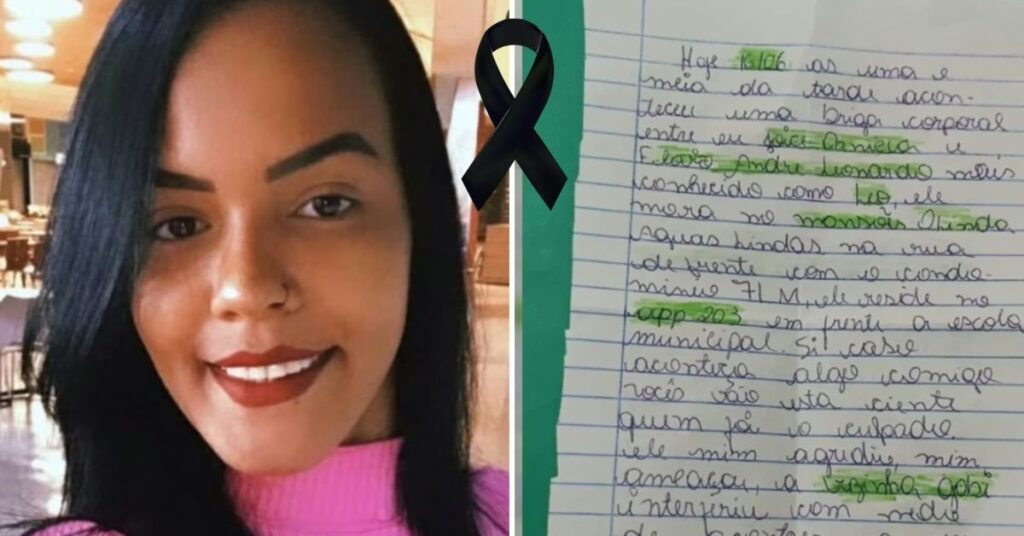 Hoje 16/06 as uma e
meia da tarde acon-
teceu uma briga corporal
entre eu Daniela e
Flavio Andre Leonardo meus
conhecido como Leo, ele
mora no mansões Olinda
aguas lindas na rua
de frente com o condo-
minio 7LM, ele reside no
app 203 em frente a escola
municipal. Si caso
aconteça algo comigo
vocês vão esta ciente
quem foi o culpado.
ele mim agrediu, mim
ameaçou, a gabi
interferiu com medo
de acontecer